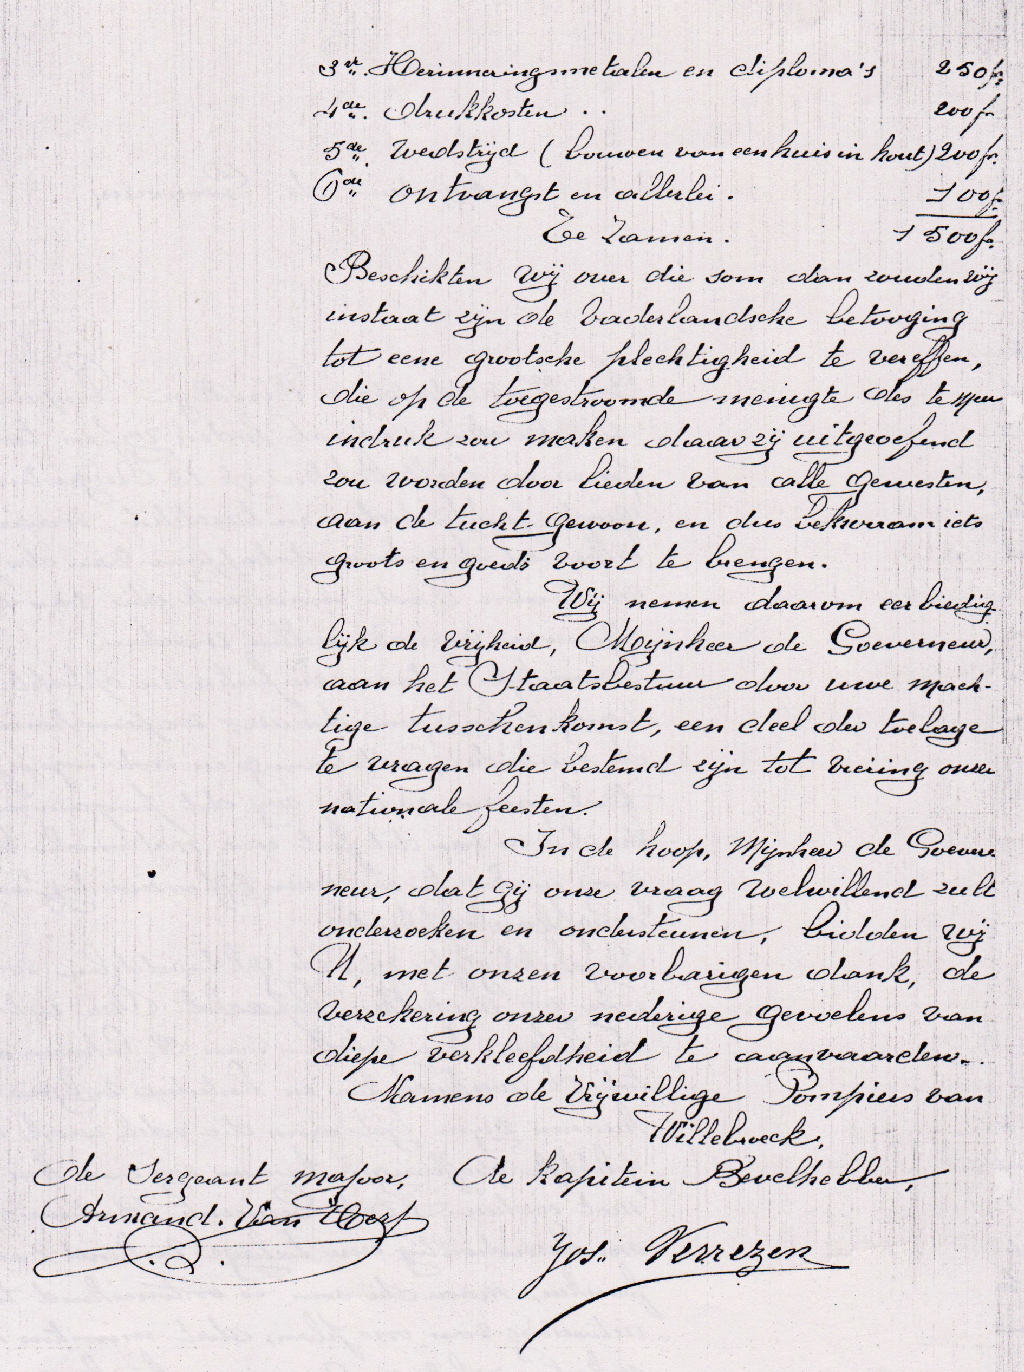 3de. Herinneringsmetalen en diploma's 250fr.
4de. drukkosten .. 200fr
5de. Wedstrijd (bouwen van een huis in hout) 200fr.
6de ontvangst en allerlei. 100fr.
Te Zamen. 1500fr.
Beschikten wij over die som dan zouden wij
instaat zijn de Vaderlandsche betooging
tot eene grootsche plechtigheid te vereffen,
die op de toegestroomde menigte des te meer
indruk zou maken daar zij uitgeoefend
zou worden door lieden van alle gewesten,
aan de tucht gewoon, en dus bekwaam iets
groots en goeds voort te brengen.
Wij nemen daarom eerbiedig
lijk de vrijheid, Mijnheer de Goeverneur,
aan het Staatsbestuur door uwe mach-
tige tusschenkomst, een deel der toelage
te vragen die bestemd zijn tot viering onzer
nationale feesten.
In de hoop, Mijnheer de Goever
neur, dat gij onze vraag welwillend zult
onderzoeken en ondersteunen, bidden wij
U, met onzen voorbarigen dank, de
verzekering onzer nederige gevoelens van
diepe verkleefdheid te aanvaarden.
Namens de Vrijwillige Pompiers van
Willebroeck,
de Sergeant majoor, De kapitein Bevelhebber,
Armand. Van
Jos. Verrezen